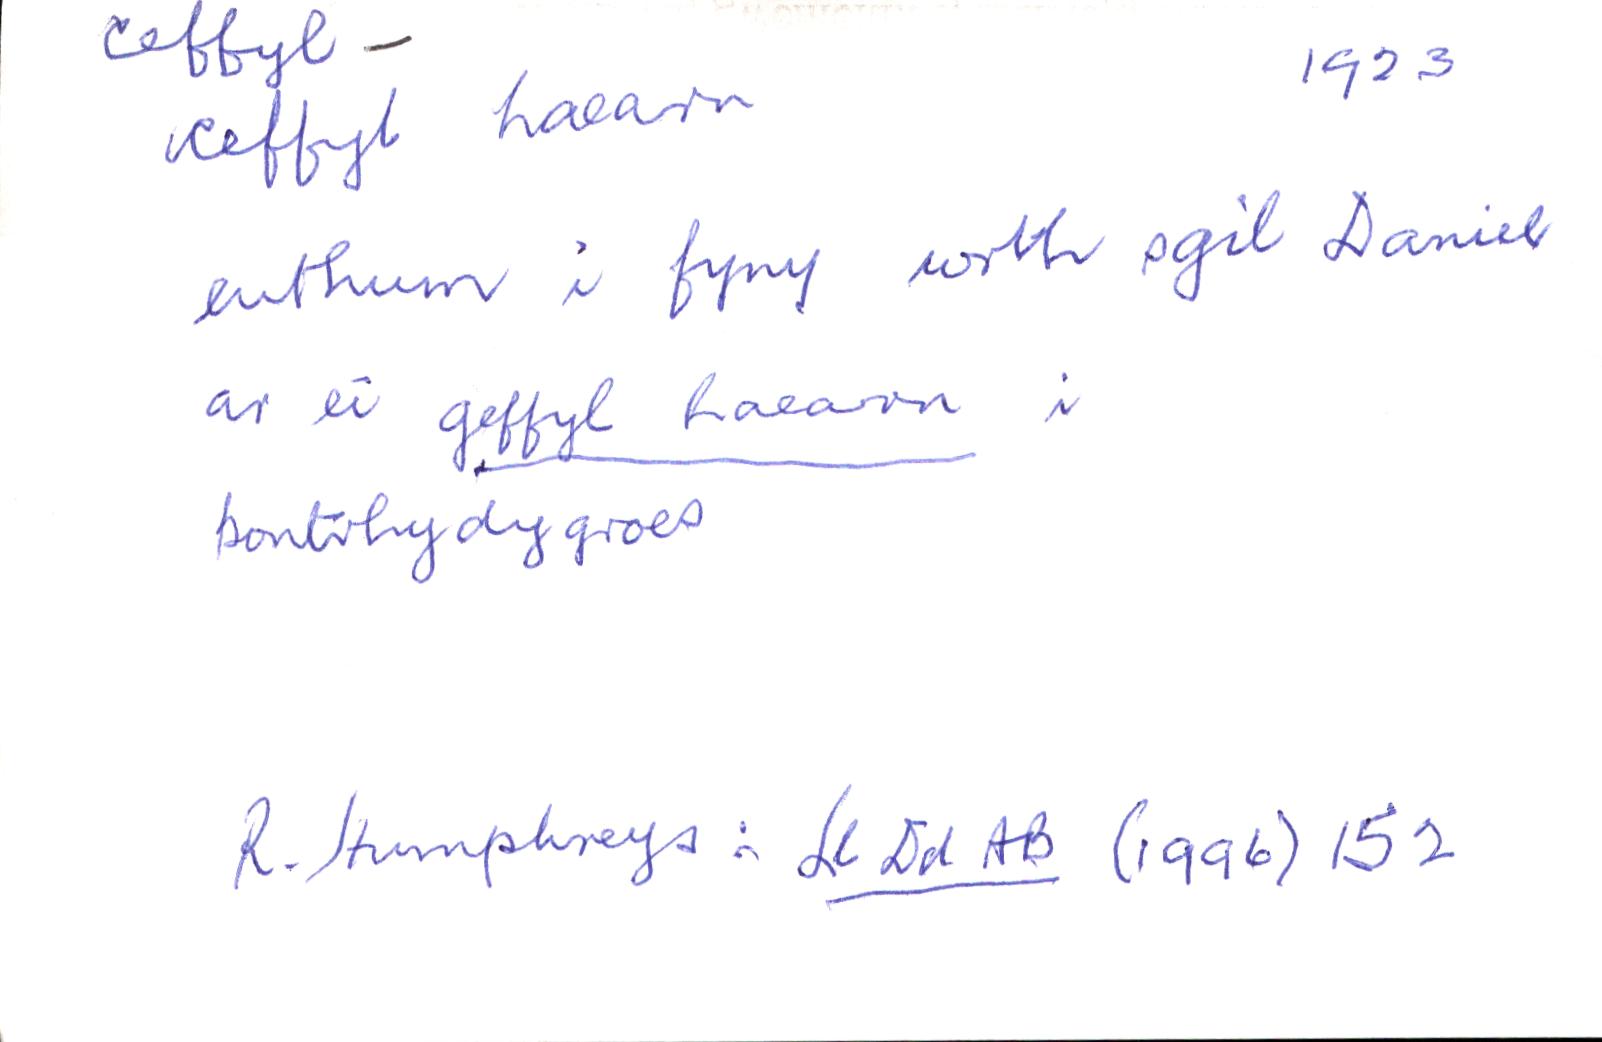 ceffyl –
1923
ceffyl haearn
euthum i fyny wrth sgil Daniel
ar ei geffyl haearn i
bontrhydygroes
R. Humphreys : Ll Dd AB (1996) 152